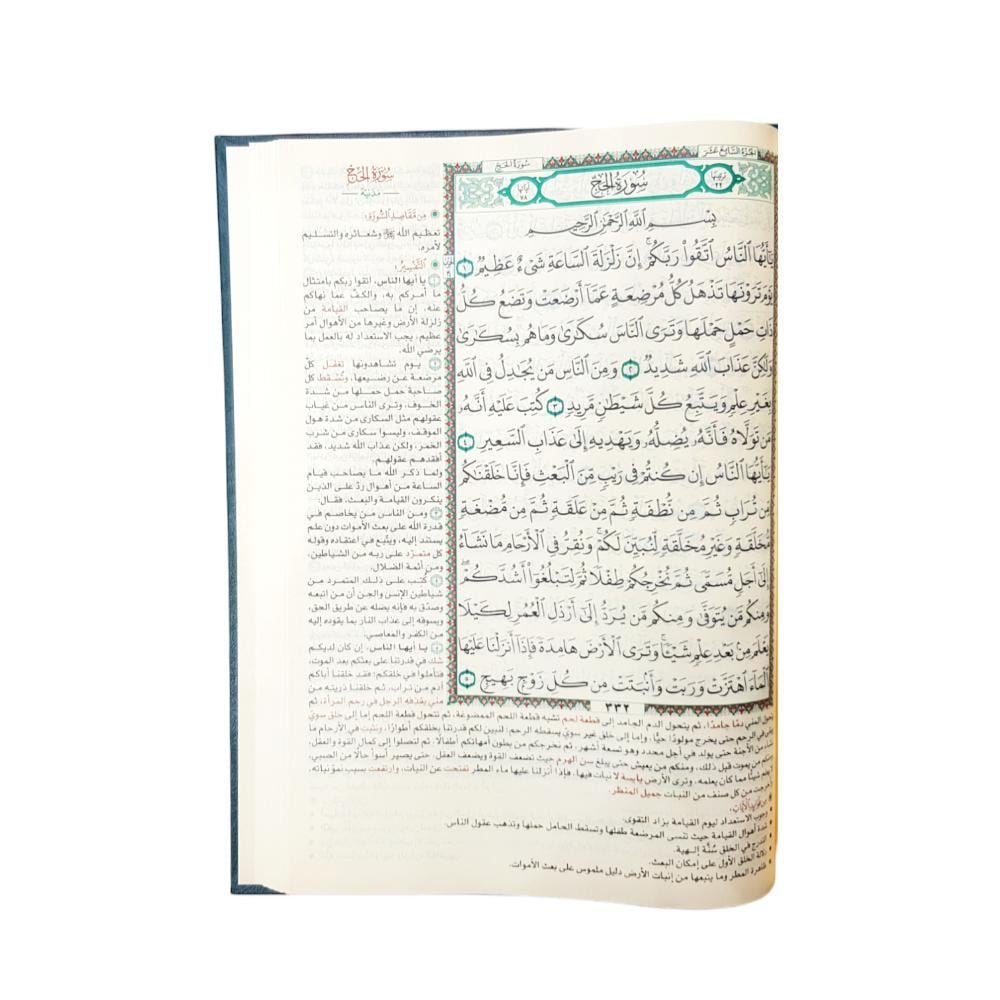 سُورَةُ الحَجّ
الجُزْءُ السَّابِعَ عَشَرَ
ترتيبها ٢٢
سُورَةُ الحَجّ
آياتها ٧٨
بِسْمِ ٱللَّهِ ٱلرَّحْمَٰنِ ٱلرَّحِيمِ
يَٰٓأَيُّهَا ٱلنَّاسُ ٱتَّقُوا۟ رَبَّكُمْ ۚ إِنَّ زَلْزَلَةَ ٱلسَّاعَةِ شَىْءٌ عَظِيمٌ ١
يَوْمَ تَرَوْنَهَا تَذْهَلُ كُلُّ مُرْضِعَةٍ عَمَّآ أَرْضَعَتْ وَتَضَعُ كُلُّ
ذَاتِ حَمْلٍ حَمْلَهَا وَتَرَى ٱلنَّاسَ سُكَٰرَىٰ وَمَا هُم بِسُكَٰرَىٰ
وَلَٰكِنَّ عَذَابَ ٱللَّهِ شَدِيدٌ ٢ وَمِنَ ٱلنَّاسِ مَن يُجَٰدِلُ فِى ٱللَّهِ
بِغَيْرِ عِلْمٍ وَيَتَّبِعُ كُلَّ شَيْطَٰنٍ مَّرِيدٍ ٣ كُتِبَ عَلَيْهِ أَنَّهُۥ
مَن تَوَلَّاهُ فَأَنَّهُۥ يُضِلُّهُۥ وَيَهْدِيهِ إِلَىٰ عَذَابِ ٱلسَّعِيرِ ٤
يَٰٓأَيُّهَا ٱلنَّاسُ إِن كُنتُمْ فِى رَيْبٍ مِّنَ ٱلْبَعْثِ فَإِنَّا خَلَقْنَٰكُم
مِّن تُرَابٍ ثُمَّ مِن نُّطْفَةٍ ثُمَّ مِنْ عَلَقَةٍ ثُمَّ مِن مُّضْغَةٍ
مُّخَلَّقَةٍ وَغَيْرِ مُخَلَّقَةٍ لِّنُبَيِّنَ لَكُمْ ۚ وَنُقِرُّ فِى ٱلْأَرْحَامِ مَا نَشَآءُ
إِلَىٰٓ أَجَلٍ مُّسَمًّى ثُمَّ نُخْرِجُكُمْ طِفْلًا ثُمَّ لِتَبْلُغُوٓا۟ أَشُدَّكُمْ ۖ
وَمِنكُم مَّن يُتَوَفَّىٰ وَمِنكُم مَّن يُرَدُّ إِلَىٰٓ أَرْذَلِ ٱلْعُمُرِ لِكَيْلَا
يَعْلَمَ مِنۢ بَعْدِ عِلْمٍ شَيْـًٔا ۚ وَتَرَى ٱلْأَرْضَ هَامِدَةً فَإِذَآ أَنزَلْنَا عَلَيْهَا
ٱلْمَآءَ ٱهْتَزَّتْ وَرَبَتْ وَأَنۢبَتَتْ مِن كُلِّ زَوْجٍۭ بَهِيجٍ ٥
٣٣٢
سُورَةُ الحَجّ
مَدَنِيَّة
مِن مَّقَاصِدِ السُّورَةِ:
تعظيم الله ﷻ وشعائره والتسليم
لأمره.
التَّفْسِيرُ:
١ يا أيها الناس، اتقوا ربكم بامتثال
ما أمركم به، والكف عما نهاكم
عنه، إن ما يصاحب القيامة من
زلزلة الأرض وغيرها من الأهوال أمر
عظيم، يجب الاستعداد له بالعمل بما
يرضي الله.
٢ يوم تشاهدونها تغفل كل
مرضعة عن رضيعها، وتُسْقط كل
صاحبة حمل حملها من شدة
الخوف، وترى الناس من غياب
عقولهم مثل السكارى من شدة هول
الموقف، وليسوا سكارى من شرب
الخمر، ولكن عذاب الله شديد، فقد
أفقدهم عقولهم.
ولما ذكر الله ما يصاحب قيام
الساعة من أهوال ردّ على الذين
ينكرون القيامة والبعث، فقال:
٣ ومن الناس من يخاصم في
قدرة الله على بعث الأموات دون علم
يستند إليه، ويتّبع في اعتقاده وقوله
كل متمرّد على ربه من الشياطين،
ومن أئمة الضلال.
٤ كُتب على ذلك المتمرد من
شياطين الإنس والجن أن من اتبعه
وصدّق به فإنه يضله عن طريق الحق،
ويسوقه إلى عذاب النار بما يقوده إليه
من الكفر والمعاصي.
٥ يا أيها الناس، إن كان لديكم
شك في قدرتنا على بعثكم بعد الموت،
فتأملوا في خلقكم؛ فقد خلقنا أباكم
آدم من تراب، ثم خلقنا ذريته من
مني يقذفه الرجل في رحم المرأة، ثم
يتحول المني دمًا جامدًا، ثم يتحول الدم الجامد إلى قطعة لحم تشبه قطعة اللحم الممضوغة، ثم تتحول قطعة اللحم إما إلى خلق سوي
يبقى في الرحم حتى يخرج مولودًا حيًّا، وإما إلى خلق غير سوي يسقطه الرحم؛ لنبين لكم قدرتنا بخلقكم أطوارًا، ونثبت في الأرحام ما
نشاء من الأجنة حتى يولد في أجل محدد وهو تسعة أشهر، ثم نخرجكم من بطون أمهاتكم أطفالًا، ثم لتصلوا إلى كمال القوة والعقل،
ومنكم من يموت قبل ذلك، ومنكم من يعيش حتى يبلغ سن الهرم حيث تضعف القوة ويضعف العقل، حتى يصير أسوأ حالًا من الصبي،
لا يعلم شيئًا مما كان يعلمه. وترى الأرض يابسة لا نبات فيها، فإذا أنزلنا عليها ماء المطر تفتحت عن النبات، وارتفعت بسبب نمو نباته،
وأخرجت من كل صنف من النبات جميل المنظر.
مِن فَوَائِدِ الآيَاتِ:
وجوب الاستعداد ليوم القيامة بزاد التقوى.
شدة أهوال القيامة حيث تنسى المرضعة طفلها وتسقط الحامل حملها وتذهب عقول الناس.
التدرج في الخلق سُنَّة إلهية.
دلالة الخلق الأول على إمكان البعث.
ظاهرة المطر وما يتبعها من إنبات الأرض دليل ملموس على بعث الأموات.